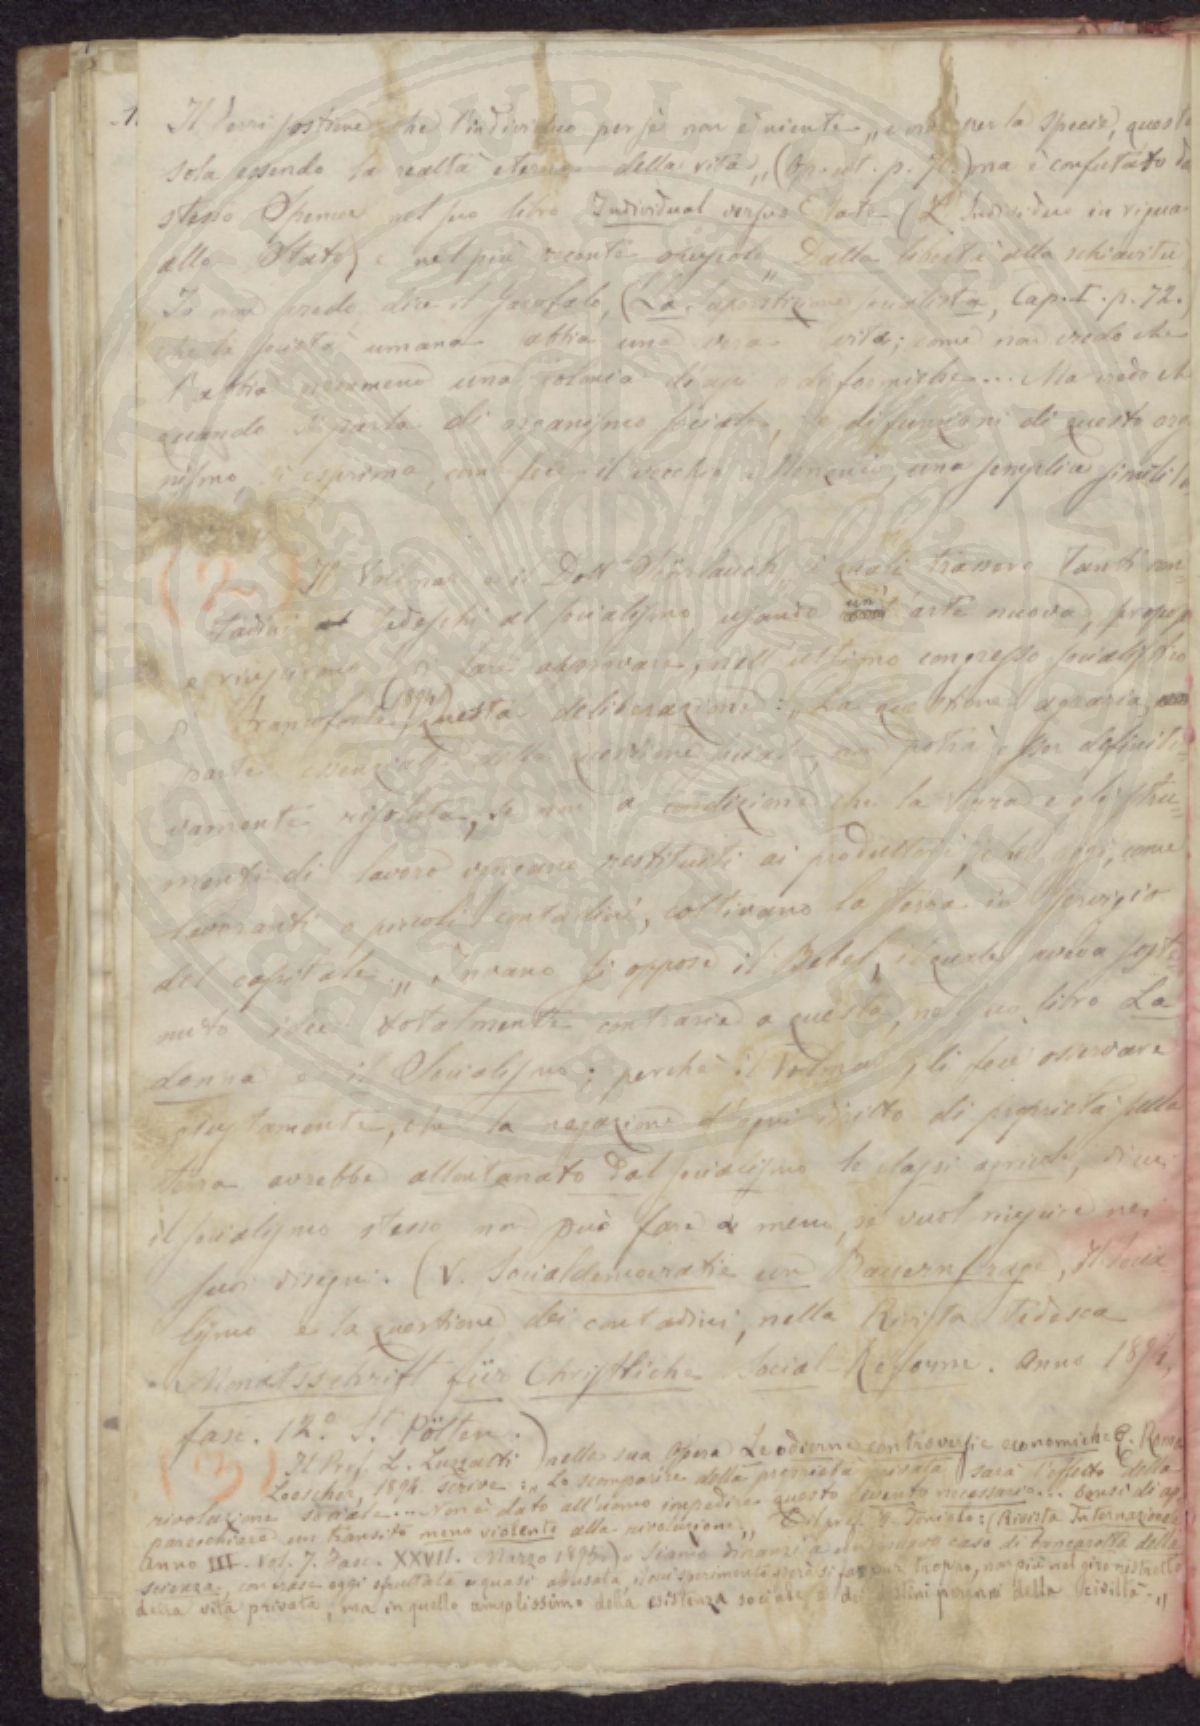 1. Il Ferri sostiene che l'individuo per sè non è niente „ e vive per la specie, questa
sola essendo la realtà eterna della vita „ (Op. cit. p. ) ma è confutato da
stesso Spencer nel suo libro Individual versus State (L'Individuo in rigua
allo Stato) e nel più recente opuscolo „ Dalla libertà alla schiavitù
Io non credo, dice il Garofalo, (La superstizione socialista, Cap. I. p. 72.)
che la società umana abbia una vera vita; come non credo che
l'abbia nemmeno una colonia d'api o di formiche... Ma credo che
quando si parla di organismo sociale, e di funzioni di questo orga
nismo, si esprima, come fece il vecchio Menenio, una semplice similitu
(2) Il Volmar e il Dott. i quali trassero tanti con-
tadini tedeschi al socialismo, usando un' arte nuova, proposero
e riuscirono a fare approvare, nell'ultimo congresso socialistico
Francoforte (1894) questa deliberazione: „ La questione agraria,
parte essenziale della questione sociale, non potrà esser definiti-
vamente risoluta, se non a condizione che la terra e gli stru-
menti di lavoro vengano restituiti ai produttori, che oggi, come
lavoranti o piccoli contadini, coltivano la terra in servigio
del capitale „. Invano si oppose il Bebel, il quale aveva soste
nuto idee totalmente contrarie a questa, nel suo libro La
donna e il Socialismo; perchè il Volmar gli fece osservare
giustamente, che la negazione d'ogni diritto di proprietà sulla
terra avrebbe allontanato dal socialismo le classi agricole, di cui
il socialismo stesso non può fare a meno, se vuol riuscire nei
suoi disegni. (V. Socialdemocratie un Bauernfrage, Il Socia
lismo e la questione dei contadini, nella Rivista tedesca
Monatsschrift für Christliche Social-Reforme. Anno 1894,
fasc. 12.° St. Pölten.)
(3) Il Prof. L. Luzzatti nella sua Opera Le odierne controversie economiche . Roma
Loescher, 1894. scrive: „ Lo scomparire della proprietà privata sarà l'effetto della
rivoluzione sociale... Non è dato all'uomo impedire questo evento necessario... bensì di ap
parecchiare un transito meno violento alla rivoluzione „ E il prof. G. Toniolo: (Rivista Internazionale
Anno III. Vol. 7. Fasc. XXVII. Marzo 1895.) „ Siamo dinanzi a un nuovo caso di bancarotta della
scienza, con frase oggi sfruttata e quasi abusata, il cui sperimento verrà si fa pur troppo, non più nel giro ristretto
della vita privata, ma in quello amplissimo della esistenza sociale e dei destini perenni della civiltà. „